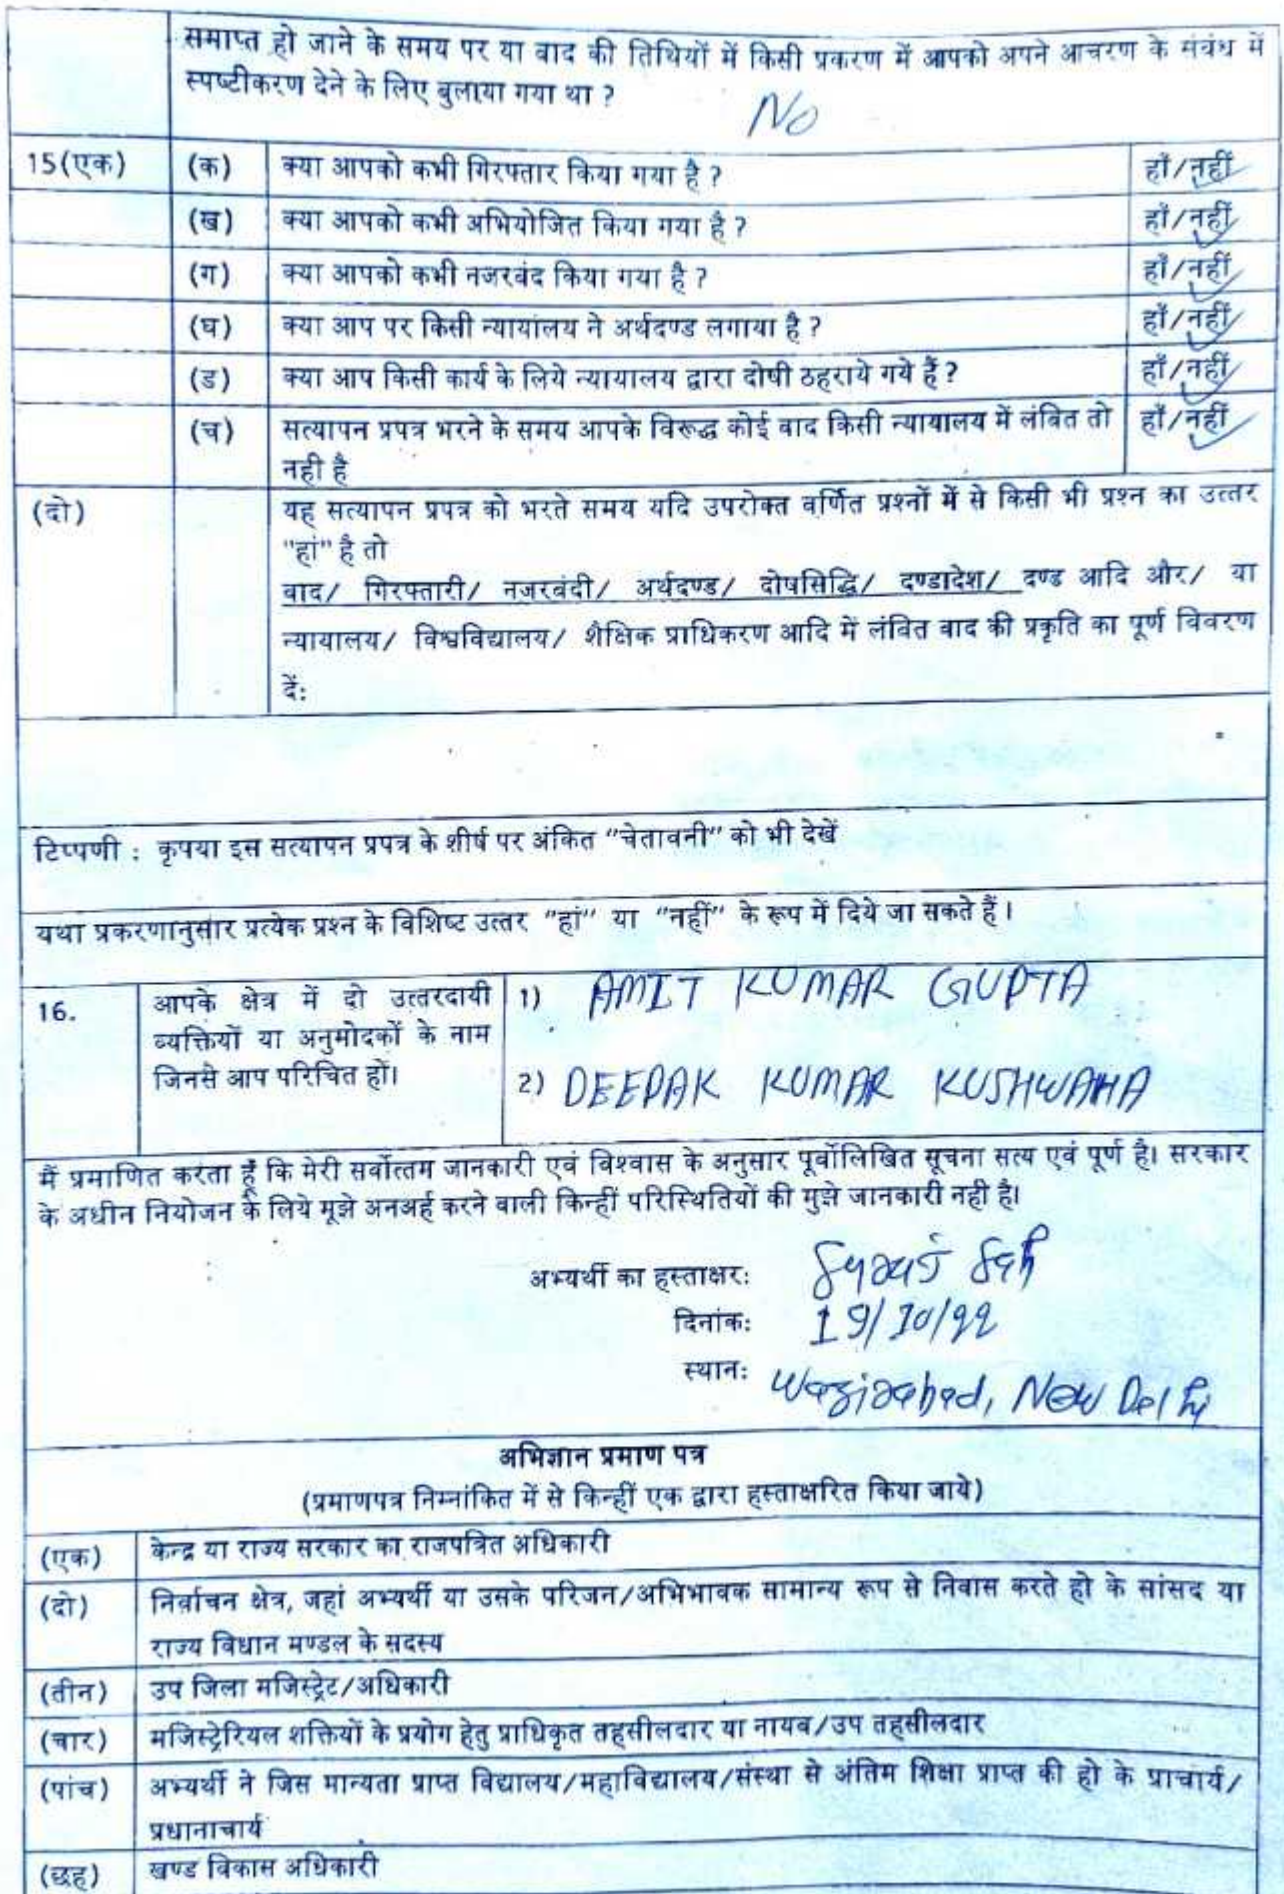 समाप्त हो जाने के समय पर या वाद की तिथियों में किसी प्रकरण में आपको अपने आचरण के संबंध में
स्पष्टीकरण देने के लिए बुलाया गया था ?
No
15(एक) (क) क्या आपको कभी गिरफ्तार किया गया है ? हाँ/नहीं
(ख) क्या आपको कभी अभियोजित किया गया है ? हाँ/नहीं
(ग) क्या आपको कभी नजरबंद किया गया है ? हाँ/नहीं
(घ) क्या आप पर किसी न्यायालय ने अर्थदण्ड लगाया है ? हाँ/नहीं
(ड) क्या आप किसी कार्य के लिये न्यायालय द्वारा दोषी ठहराये गये हैं ? हाँ/नहीं
(च) सत्यापन प्रपत्र भरने के समय आपके विरूद्ध कोई वाद किसी न्यायालय में लंबित तो हाँ/नहीं
नही है
(दो) यह सत्यापन प्रपत्र को भरते समय यदि उपरोक्त वर्णित प्रश्नों में से किसी भी प्रश्न का उत्तर
"हां" है तो
वाद/ गिरफ्तारी/ नजरबंदी/ अर्थदण्ड/ दोषसिद्धि/ दण्डादेश/ दण्ड आदि और/ या
न्यायालय/ विश्वविद्यालय/ शैक्षिक प्राधिकरण आदि में लंबित वाद की प्रकृति का पूर्ण विवरण
दें:
टिप्पणी : कृपया इस सत्यापन प्रपत्र के शीर्ष पर अंकित "चेतावनी" को भी देखें
यथा प्रकरणानुसार प्रत्येक प्रश्न के विशिष्ट उत्तर "हां" या "नहीं" के रूप में दिये जा सकते हैं।
16. आपके क्षेत्र में दो उत्तरदायी 1) AMIT KUMAR GUPTA
व्यक्तियों या अनुमोदकों के नाम
जिनसे आप परिचित हों। 2) DEEPAK KUMAR KUSHWAHA
मैं प्रमाणित करता हूँ कि मेरी सर्वोत्तम जानकारी एवं विश्वास के अनुसार पूर्वोलिखित सूचना सत्य एवं पूर्ण है। सरकार
के अधीन नियोजन के लिये मूझे अनअर्ह करने वाली किन्हीं परिस्थितियों की मुझे जानकारी नही है।
अभ्यर्थी का हस्ताक्षर:
दिनांक: 19/10/22
स्थान: Wazirabad, New Delhi
अभिज्ञान प्रमाण पत्र
(प्रमाणपत्र निम्नांकित में से किन्हीं एक द्वारा हस्ताक्षरित किया जाये)
(एक) केन्द्र या राज्य सरकार का राजपत्रित अधिकारी
(दो) निर्वाचन क्षेत्र, जहां अभ्यर्थी या उसके परिजन/अभिभावक सामान्य रूप से निवास करते हो के सांसद या
राज्य विधान मण्डल के सदस्य
(तीन) उप जिला मजिस्ट्रेट/अधिकारी
(चार) मजिस्ट्रेरियल शक्तियों के प्रयोग हेतु प्राधिकृत तहसीलदार या नायब/उप तहसीलदार
(पांच) अभ्यर्थी ने जिस मान्यता प्राप्त विद्यालय/महाविद्यालय/संस्था से अंतिम शिक्षा प्राप्त की हो के प्राचार्य/
प्रधानाचार्य
(छह) खण्ड विकास अधिकारी